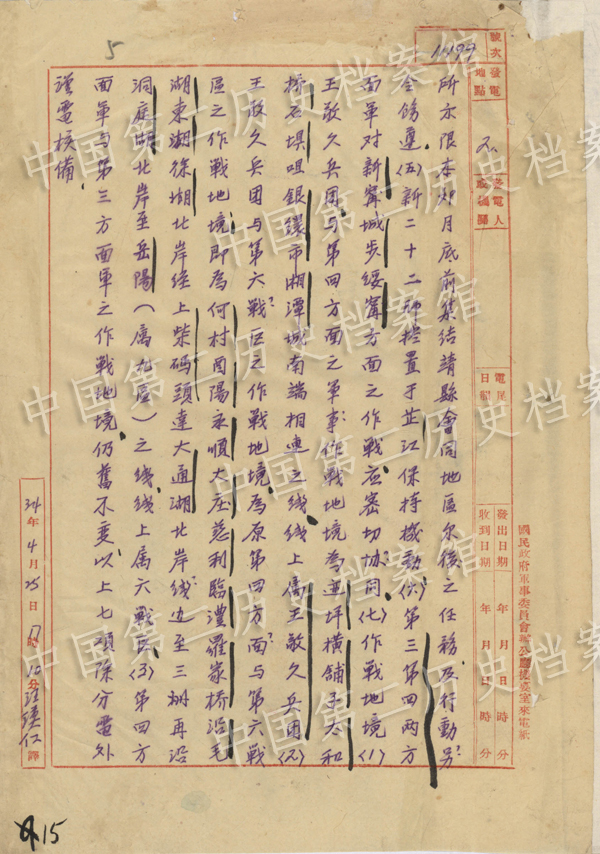 5
11199
號次
發電地點
發電人或機關
電尾日韻
發出日期 年 月 日 時 分
收到日期 年 月 日 時 分
國民政府軍事委員會辦公廳機要室來電紙
所示限本卯月底前集結靖縣會同地區尔後之任務及行動另
令飭遵〈五〉新二十二師控置于芷江保持機動〈六〉第三第四兩方
面軍对新寗城步綏寗方面之作戰应密切协同〈七〉作戰地境〈1〉
王敢久兵团与第四方面之軍事作戰地境為
坪橫舖子太和
桥石垻咀銀
市湘潭城南端相連之綫綫上屬王敢久兵团〈2〉
王敢久兵团与第六戰区之作戰地境為原第四方面与第六戰
區之作戰地境即為何村酉陽永順大庄慈利臨澧羅家桥沿毛
湖東湖徐湖北岸經上柴码頭達大通湖北岸綫迄至三洲再沿
洞庭湖北岸至岳陽（屬九區）之綫綫上屬六戰區〈3〉第四方
面軍与第三方面軍之作戰地境仍舊不变以上七項除分電外
謹電核備
34年4月25日
時10分
譯
15
中国第二历史档案馆
中国第二历史档案馆
中国第二历史档案馆
中国第二历史档案馆